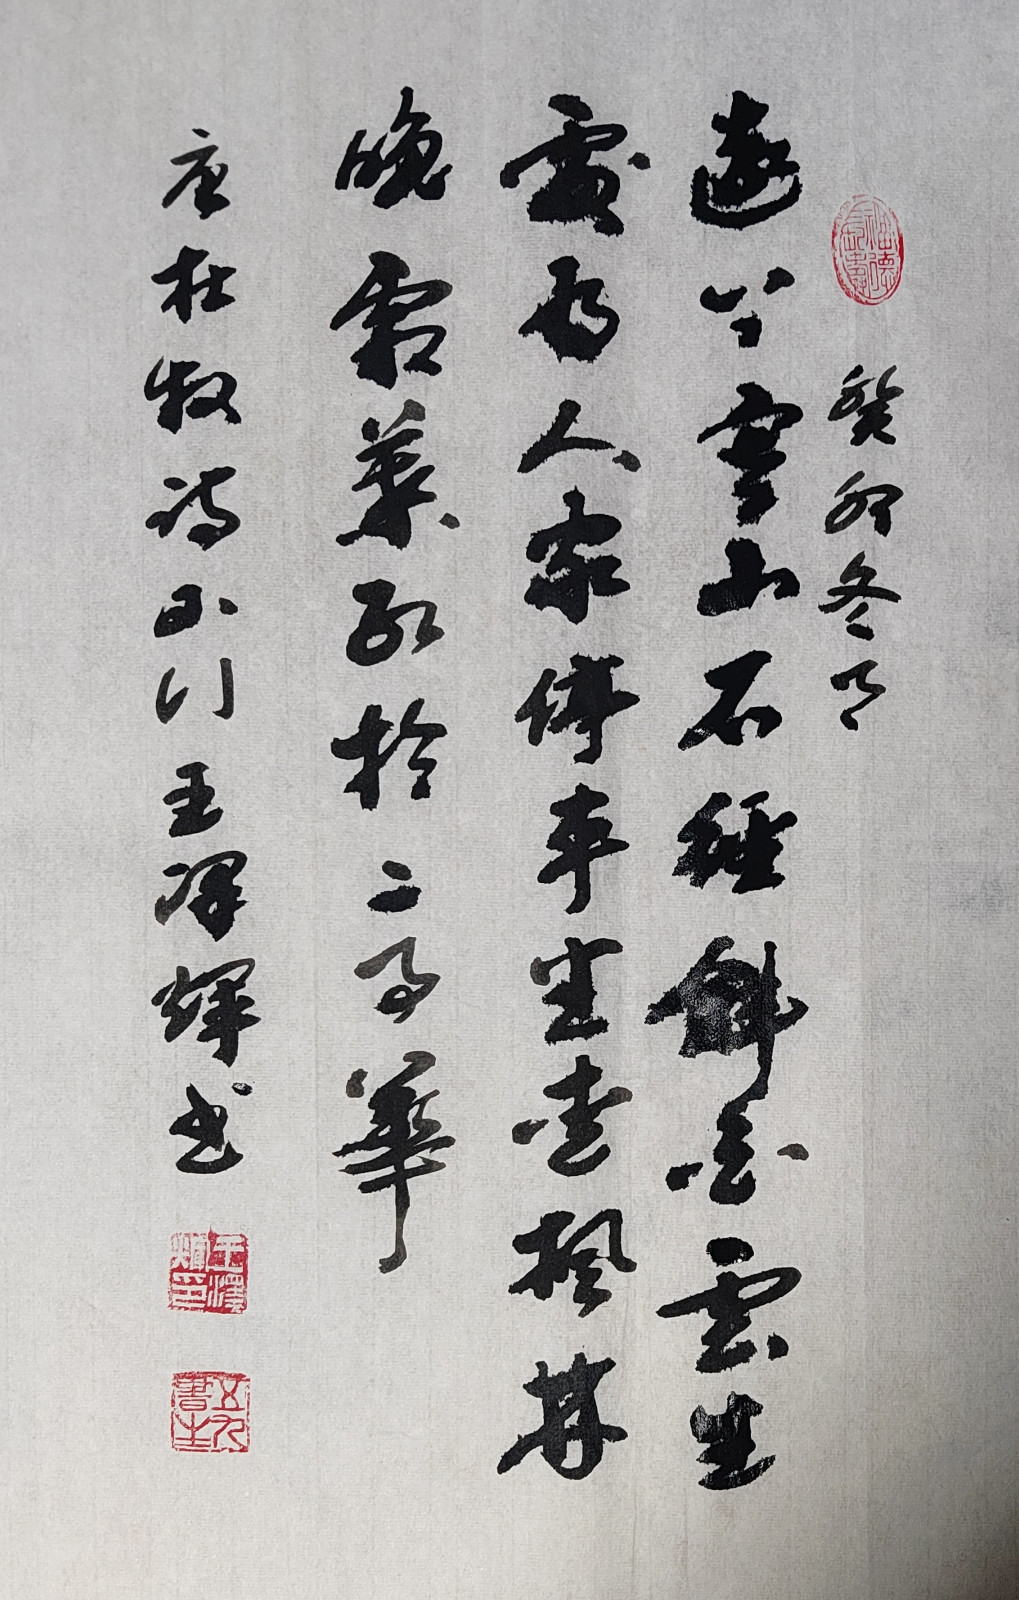 癸卯冬月
遠上寒山石徑斜白雲生
處有人家停車坐愛楓林
晚霜葉紅於二月華
唐杜牧詩山行王澤輝书
王澤輝印